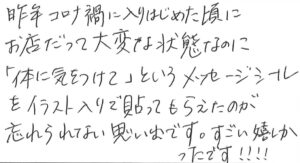 昨年コロナ禍に入りはじめた頃に
お店だって大変な状態なのに
「体に気をつけて」というメッセージシール
をイラスト入りで貼ってもらえたのが
忘れられてない思い出です。すごい嬉しか
ったです!!!!